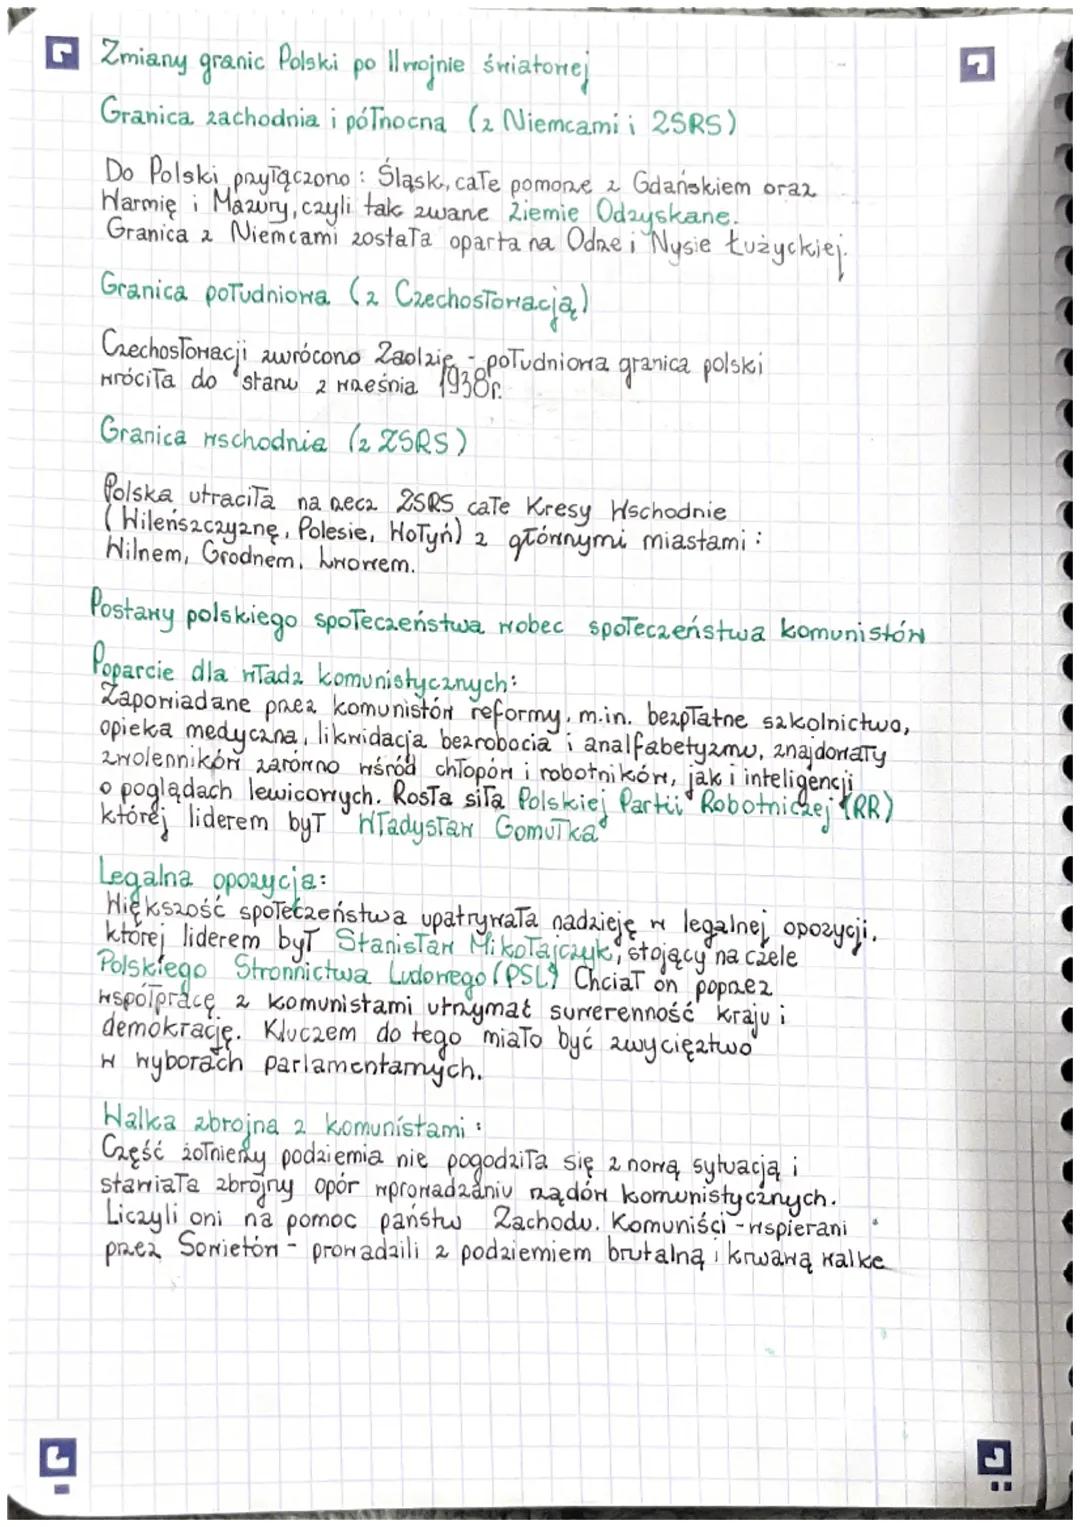 Zmiany granic Polski po II wojnie światowej
Granica zachodnia i północna (z Niemcami i ZSRS)
Do Polski przyłączono: Śląsk, całe pomorze z Gdańskiem oraz
Warmię i Mazury, czyli tak zwane Ziemie Odzyskane.
Granica z Niemcami została oparta na Odrze i Nysie Łużyckiej.
Granica południowa (z Czechosłowacją)
Czechosłowacji zwrócono Zaolzie - południowa granica polski
wróciła do stanu z września 1938r.
Granica wschodnia (z ZSRS)
Polska utraciła na rzecz ZSRS całe Kresy Wschodnie
(Wileńszczyznę, Polesie, Wołyń) z głównymi miastami:
Wilnem, Grodnem, Lwowem.
Postawy polskiego społeczeństwa wobec społeczeństwa komunistów
Poparcie dla władz komunistycznych:
Zapowiadane przez komunistów reformy, m.in. bezpłatne szkolnictwo,
opieka medyczna, likwidacja bezrobocia i analfabetyzmu, znajdowały
zwolenników zarówno wśród chłopów i robotników, jak i inteligencji
o poglądach lewicowych. Rosła siła Polskiej Partii Robotniczej (RR)
której liderem był Władysław Gomułka
Legalna opozycja:
Większość społeczeństwa upatrywała nadzieję w legalnej opozycji,
której liderem był Stanisław Mikołajczyk, stojący na czele
Polskiego Stronnictwa Ludowego (PSL) Chciał on poprzez
współpracę z komunistami utrzymać suwerenność kraju i
demokrację. Kluczem do tego miało być zwycięztwo
w wyborach parlamentarnych.
Walka zbrojna z komunistami:
Część żołnierzy podziemia nie pogodziła się z nową sytuacją i
stawiała zbrojny opór wprowadzaniu rządów komunistycznych.
Liczyli oni na pomoc państw Zachodu. Komuniści - wspierani
przez Sowietów - prowadzili z podziemiem brutalną i krwawą walkę